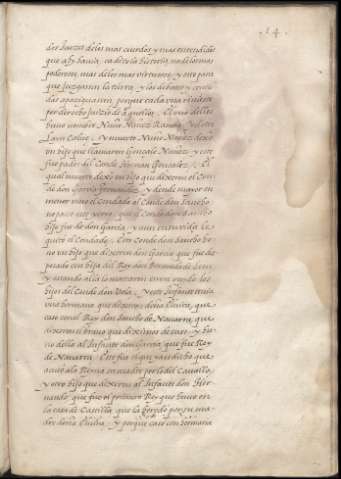 14.
dos Juezes delos mas cuerdos, y mas entendidos
que aһy hauia, ca dize la historia no delos mas
poderosos, mas delos mas virtuosos, y esto para
que Juzgassen la tierra, y los debates, y
das apaziguassen, porque cada cosa viniesse
por derecho juizio de aquellos. El vno dellos
huuo nombre Nuño Nuñez Rasura, y el otro
Layn Caluo; Y muerto Nuño Nuñez dexó
vn hijo que llamaron Gonçalo Nuñez, y este
fue padre del Conde Fernan Gonçalez; El
qual muerto dexó vn hijo que dixeron el Con
de don Garcia Fernandez, y dende mayor en
menor vino el condado al Conde don Sancho
no poco vez que el Conde don Sancho
hijo fue de don Garcia, y aun en su vida le
quitó el Condado. Este Conde don Sancho ho
uo vn hijo que dixeron don Garcia que fue des
posado con hija del Rey don Bermudo de Leon,
y estando allá lo mataron los
hijos del Conde don Vela; Y este Infante tenia
vna hermana que dixeron doña Eluira, que
caso con el Rey don Sancho de Nauarra, que
dixeron el brauo que diximos de suso, y hu
uo della al Infante don Garcia, que fue Rey
de Nauarra. Este fue el que ya es dicho que
acusó ala Reina su madre por lo del Cauallo,
y otro hijo que dixeron al Infante don Her
nando, que fue el primero Rey que huuo en
la casa de Castilla, que la heredó por su ma
dre doña Eluira; Y porque caso con hermana